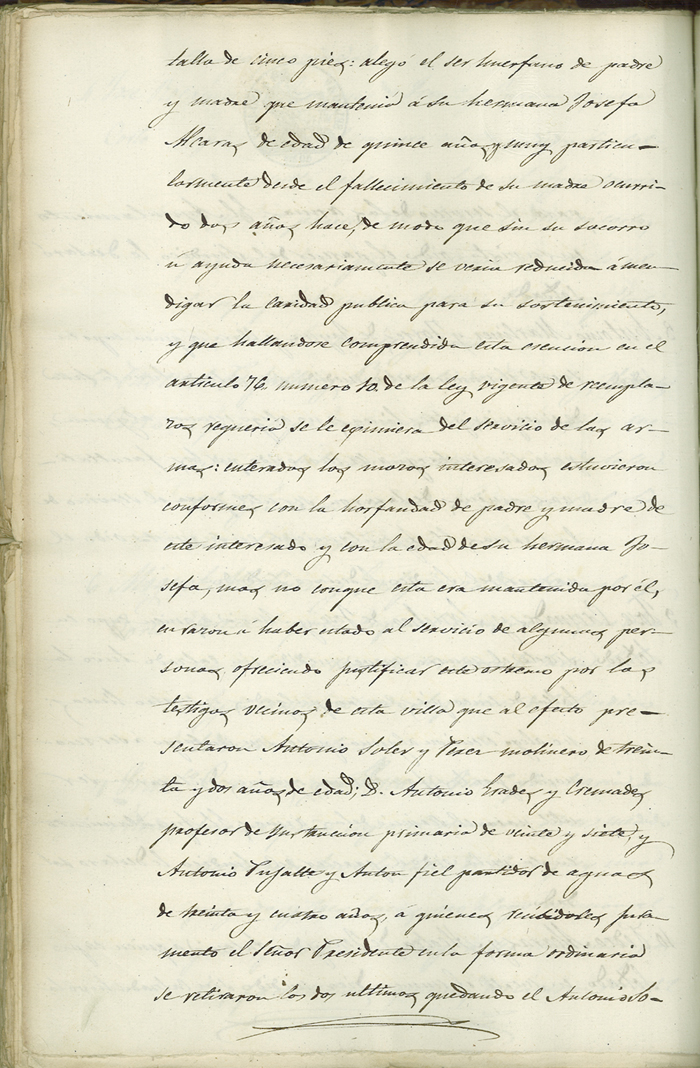 talla de cinco pies: alegó el ser huerfano de padre
y madre que mantenia á su hermana Josefa
Alcaraz de edad de quince años y muy particu-
larmente desde el fallecimiento de su madre ocurri-
do dos años hace, de modo que sin su socorro
ú ayuda necesariamente se veria reducida á men-
digar la caridad publica para su sostenimiento,
y que hallandose comprendida esta esencion en el
articulo 76, numero 10. de la ley vigente de reempla-
zos, requeria se le eximiera del servicio de las ar-
mas: enterados los mozos interesados estuvieron
conformes con la horfandad de padre y madre de
este interesado y con la edad de su hermana Jo-
sefa, mas no conque esta era mantenida por él,
en razon á haber estado al servicio de algunas per-
sonas, ofreciendo justificar este estremo por los
testigos vecinos de esta villa que al efecto pre-
sentaron Antonio Soler y Perez molinero de trein-
ta y dos años de edad; D. Antonio Grades y Cremades
profesor de ynstruccion primaria de veinte y siete, y
Antonio Pujalte y Anton fiel partidor de aguas
de treinta y cuatro años, á quienes recibidoles jura-
mento el Señor Presidente en la forma ordinaria
se retiraron los dos ultimos quedando el Antonio So-